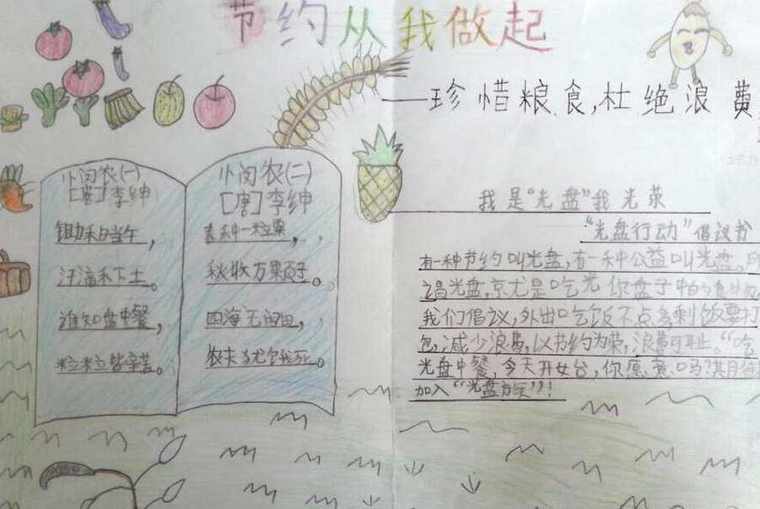 节约从我做起
——珍惜粮食,杜绝浪费
小悯农(一)
[唐]李绅
锄禾日当午,
汗滴禾下土。
谁知盘中餐,
粒粒皆辛苦。
小悯农(二)
[唐]李绅
春种一粒粟,
秋收万果子。
四海无闲田,
农夫犹饿死。
我是“光盘”我光荣
“光盘行动”倡议
有一种节约叫光盘,有一种公益叫光盘,所
谓光盘,就是吃光你盘子中的
我们倡议,外出吃饭不点多剩饭要打
包,减少浪费,以节约为荣,浪费可耻。“吃
光盘中餐,今天开始,你愿意吗?
加入“光盘